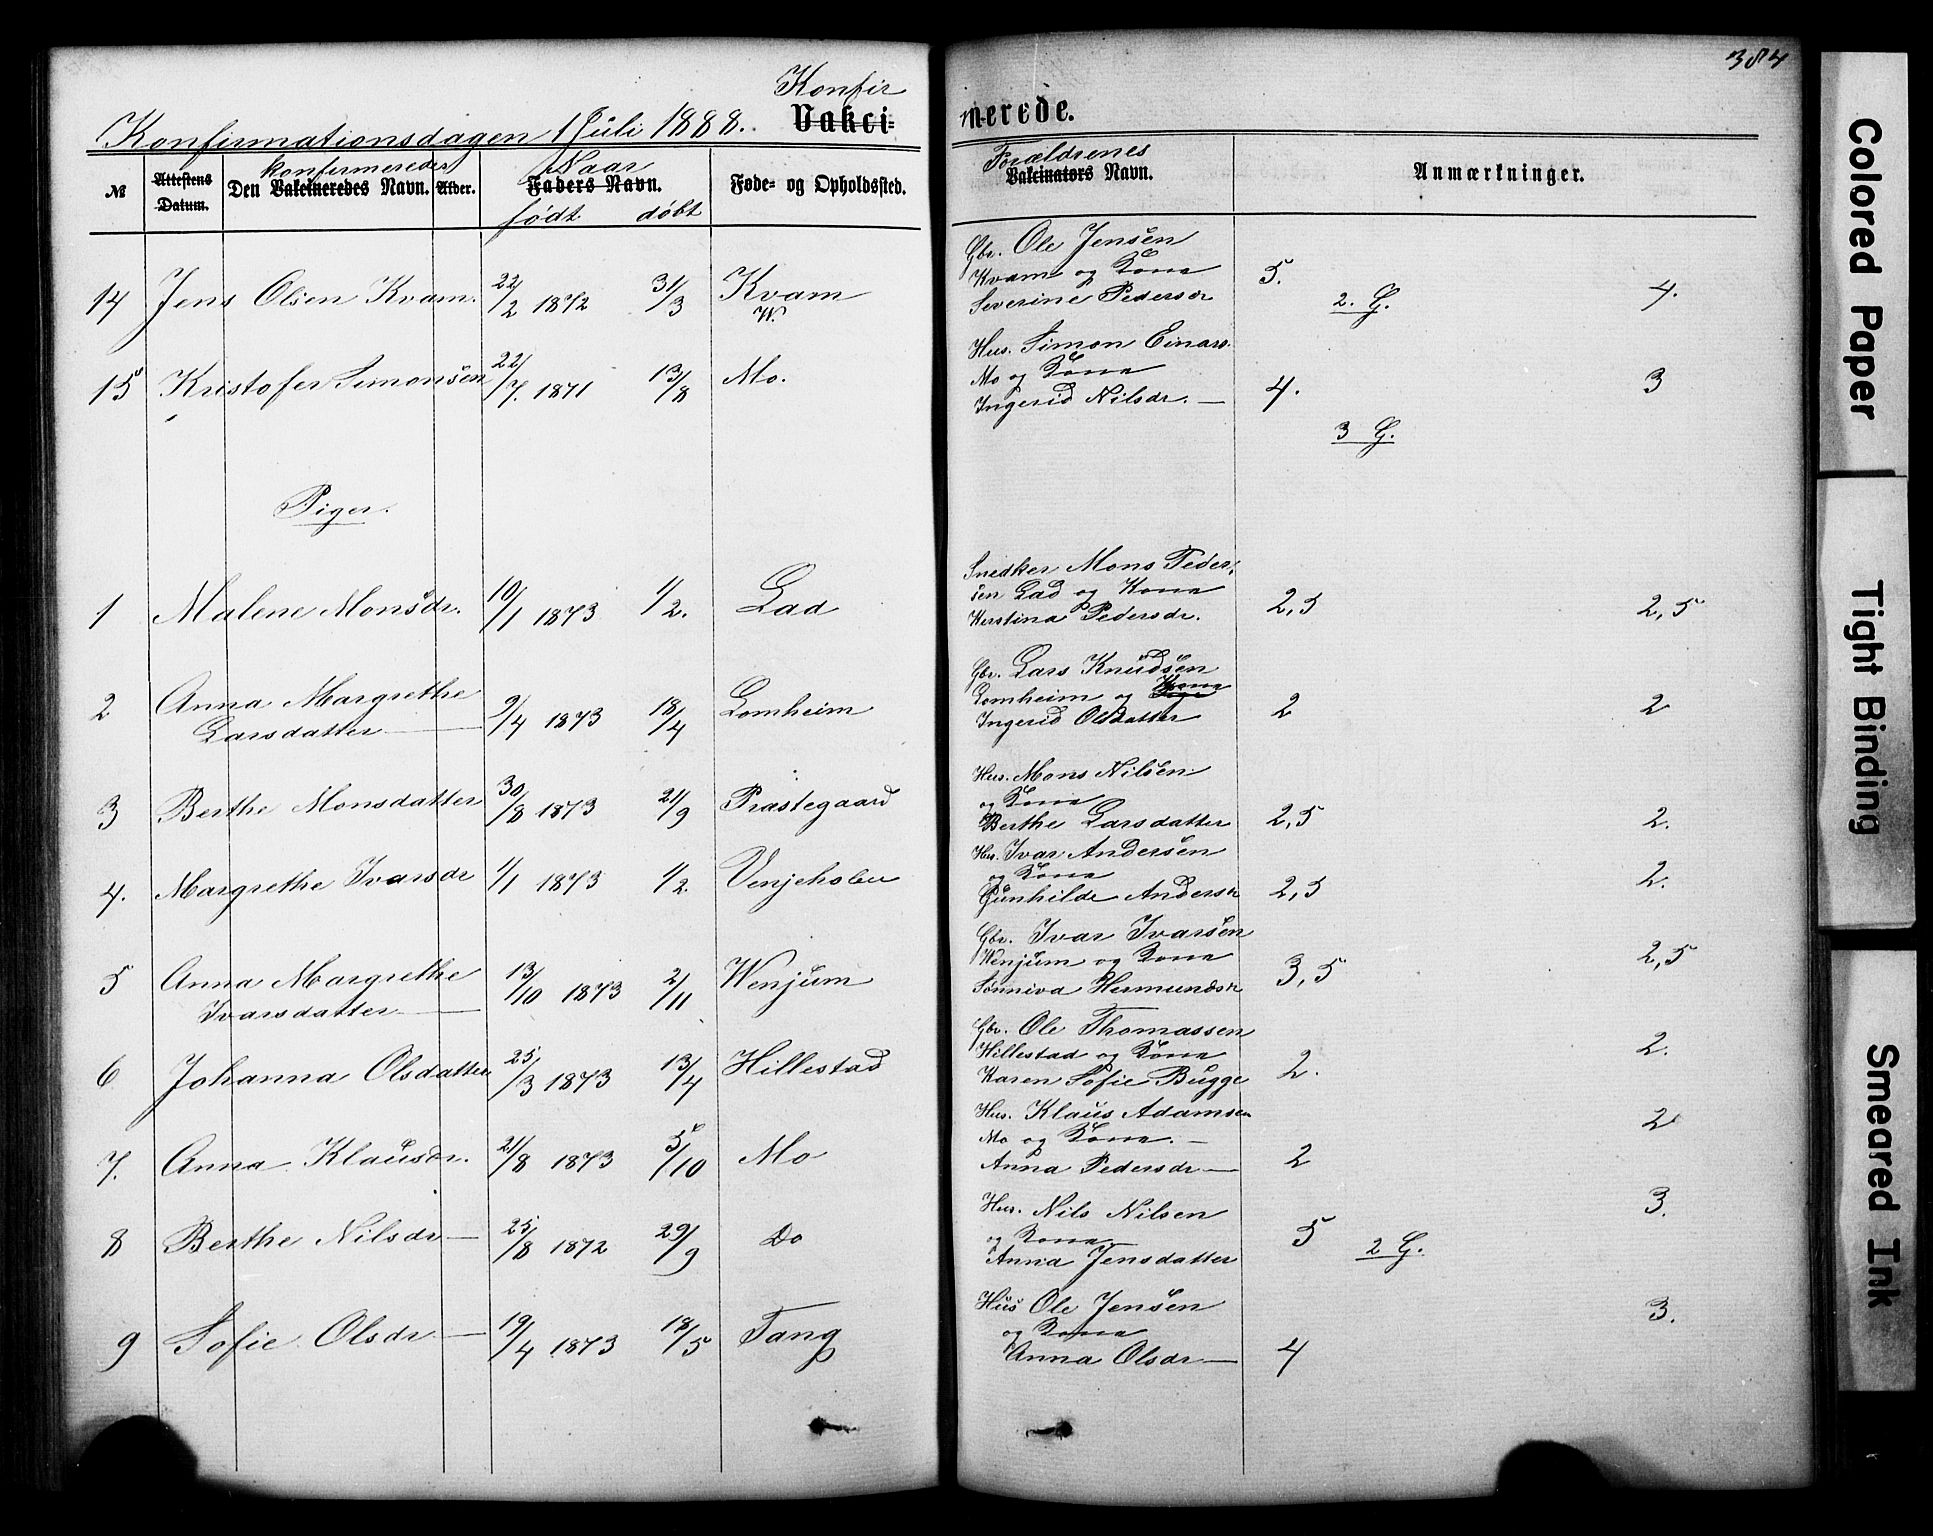 384
Konfirmationsdagen 1 Juli 1888. Konfir
Vakci= merede.
№ Attestens Datum. Den konfirmeredes Vakcineredes Navn. Alder. Naar Faders Navn. født døbt Føde= og Opholdssted. Forældrenes Vakcinators Navn. Anmærkninger.
14 Jens Olsen Kvam. 22/2 1872 31/3 Kvam
W.
Gbr. Ole Jensen
Kvam og Kone
Severine Pedersdr
5. 2. G. 4.
15 Kristofer Simonsen 22/7. 1871 13/8 Mo.
Hus. Simon Einars.
Mo og Kone
Ingerid Nilsdr. —
4. 3 G. 3
Piger.
1 Malene Monsdr. 10/1 1873 1/2. Lad
Snedker Mons Peder-
sen Lad og Kone
Kerstina Pedersdr.
2,5 2,5
2 Anna Margrethe
Larsdatter 9/4 1873 18/4 Lomheim
Gbr. Lars Knudsen
Lomheim og Kone
Ingerid Olsdatter
2 2
3 Berthe Monsdatter 30/8 1873 21/9 Prastegaard
Hus. Mons Nilsen
og Kone
Berthe Larsdatter
2,5 2.
4. Margrethe Ivarsdr 1/1 1873 1/2.
Hus. Ivar Andersen
og Kone
Gunhilde Andersdr
2,5 2.
5 Anna Margrethe
Ivarsdatter 13/10 1873 2/11 Wenjum
Gbr. Ivar Ivarsen
Wenjum og Kone
Sønniva Hermundsdr
3,5 2,5
6 Johanna Olsdatter 25/3 1873 13/4 Hillestad
Gbr. Ole Thomassen
Hillestad og Kone
Karen Sofie Bugge
2. 2.
7. Anna Klausdr. 21/8 1873 5/10 Mo
Hus. Klaus Adamsen
Mo og Kone. —
Anna Pedersdr —
2 2
8 Berthe Nilsdr — 25/8 1872 29/9 Do
Hus. Nils Nilsen
og Kone
Anna Jensdatter
5 2 G. 3.
9 Sofie Olsdr — 19/4 1873 18/5 Tang
Hus Ole Jensen
og Kone
Anna Olsdr —
4 3.
Colored Paper
Tight Binding
Smeared Ink